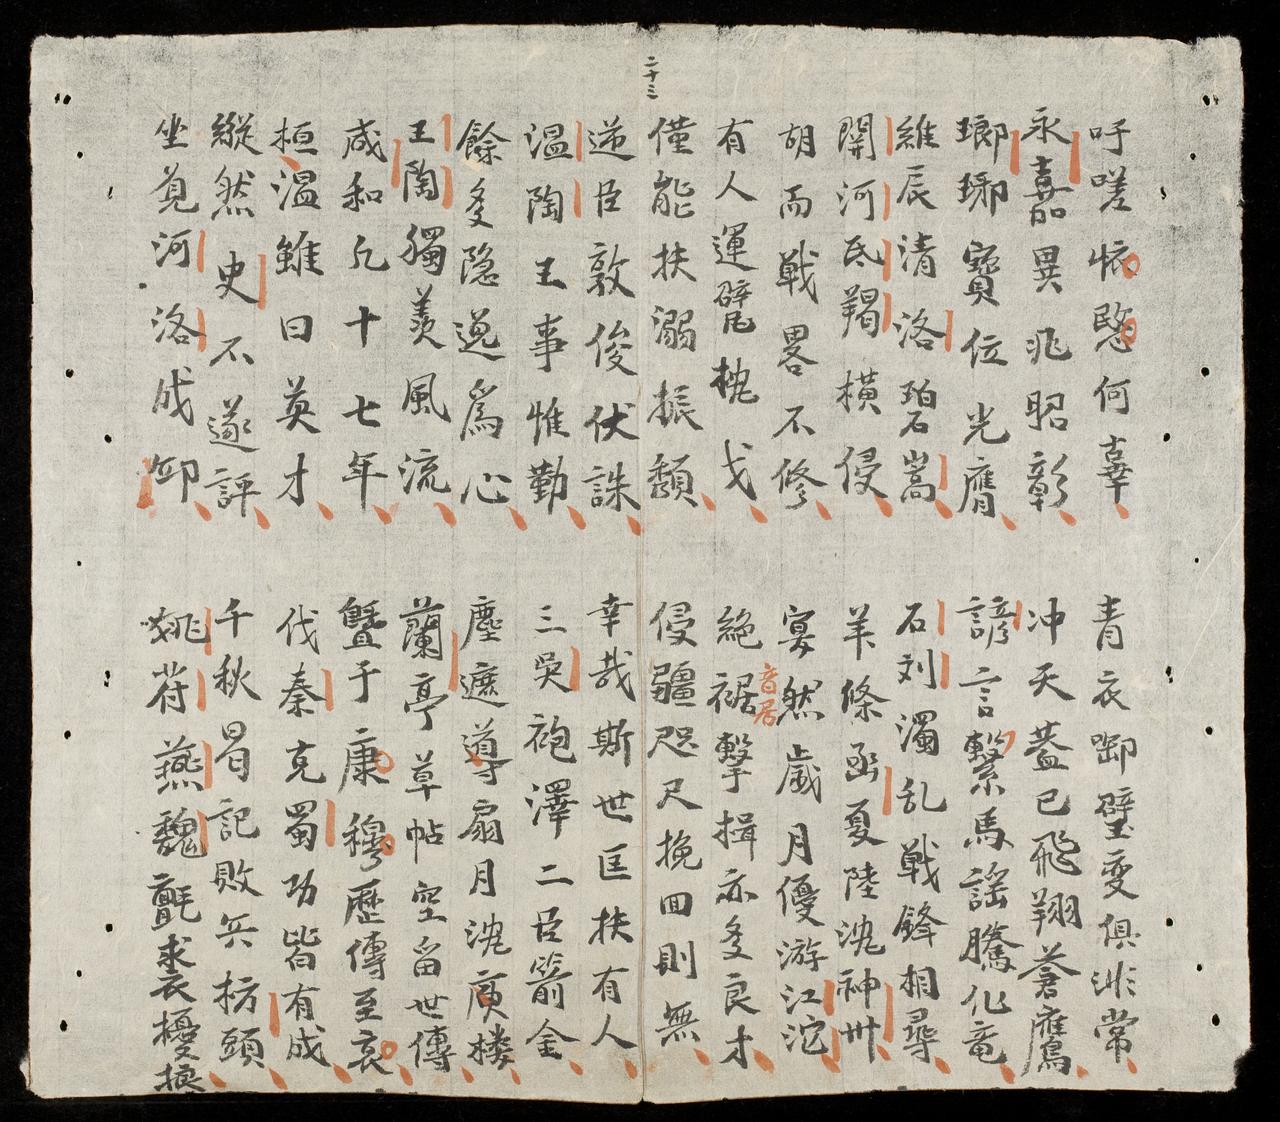 二十三
吁嗟怀愍何辜
青衣啣璧变俱非常
永嘉異兆昭彰
冲天蓋已飛翔蒼鷹
瑯琊寶位光膺
諺言繫馬謠騰化竜
維辰清洛碧嵩
石刘濁乱戦鋒相尋
関河氐羯横侵
羊條函夏陸沈神州
胡而戦畧不修
寞然歲月優游江沱
有人運甓枕戈
絶裾擊楫亦多良才
音居
僅能扶溺振頽
侵疆咫尺挽回則無
逆臣敦俊伏誅
幸哉斯世匡扶有人
温陶王事惟勤
三吳袍澤二臣箭金
餘多隐逸為心
塵遮導扇月沈庾楼
王陶獨羨風流
蘭亭草帖空留世傳
咸和凡十七年
曁于康穆歷傳至哀
桓温雖曰英才
伐秦克蜀功皆有成
縱然史不遂評
千秋曷記敗兵枋頭
坐覓河洛成
姚苻燕魏氈裘擾攘